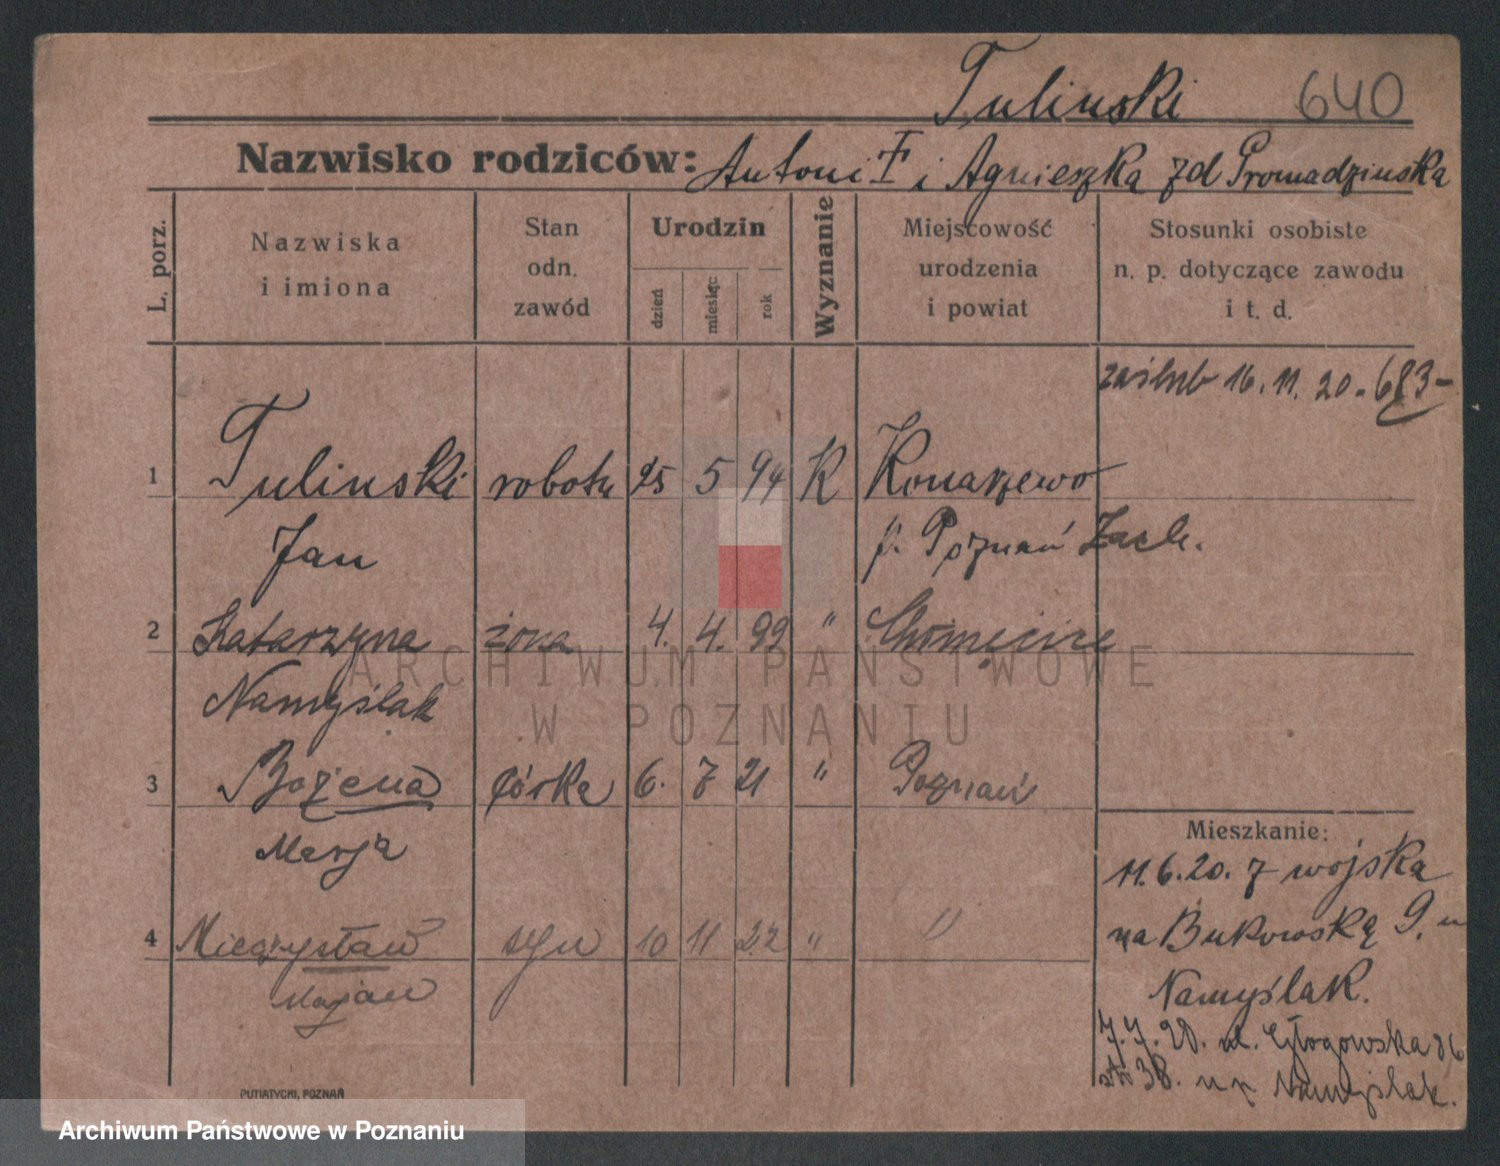 Tulinski 640
Nazwisko rodziców: Antoni † i Agnieszka zd Gromadzinska
L. porz.
Nazwiska
i imiona
Stan
odn.
zawód
Urodzin
dzień
miesiąc
rok
Wyznanie
Miejscowość
urodzenia
i powiat
Stosunki osobiste
n. p. dotyczące zawodu
i t. d.
zaślub 16.11.20.
1 Tulinski robotn 25 5 94 K Konarzewo
Jan p. Poznań Zach.
2 Katarzyna żona 4. 4. 99 " Chomęcice
Namyślak
3 Bożena córka 6. 7 21 " Poznań
Marja
4 Mieczysław syn 10 11 22 " "
Marjan
Mieszkanie:
11.6.20. z wojska
na Bukowską 9. u
Namyślak.
7.7.20. ul. Głogowska 86
38. Namyślak.
PUTIATYCKI, POZNAŃ
ARCHIWUM PAŃSTWOWE
W POZNANIU
Archiwum Państwowe w Poznaniu